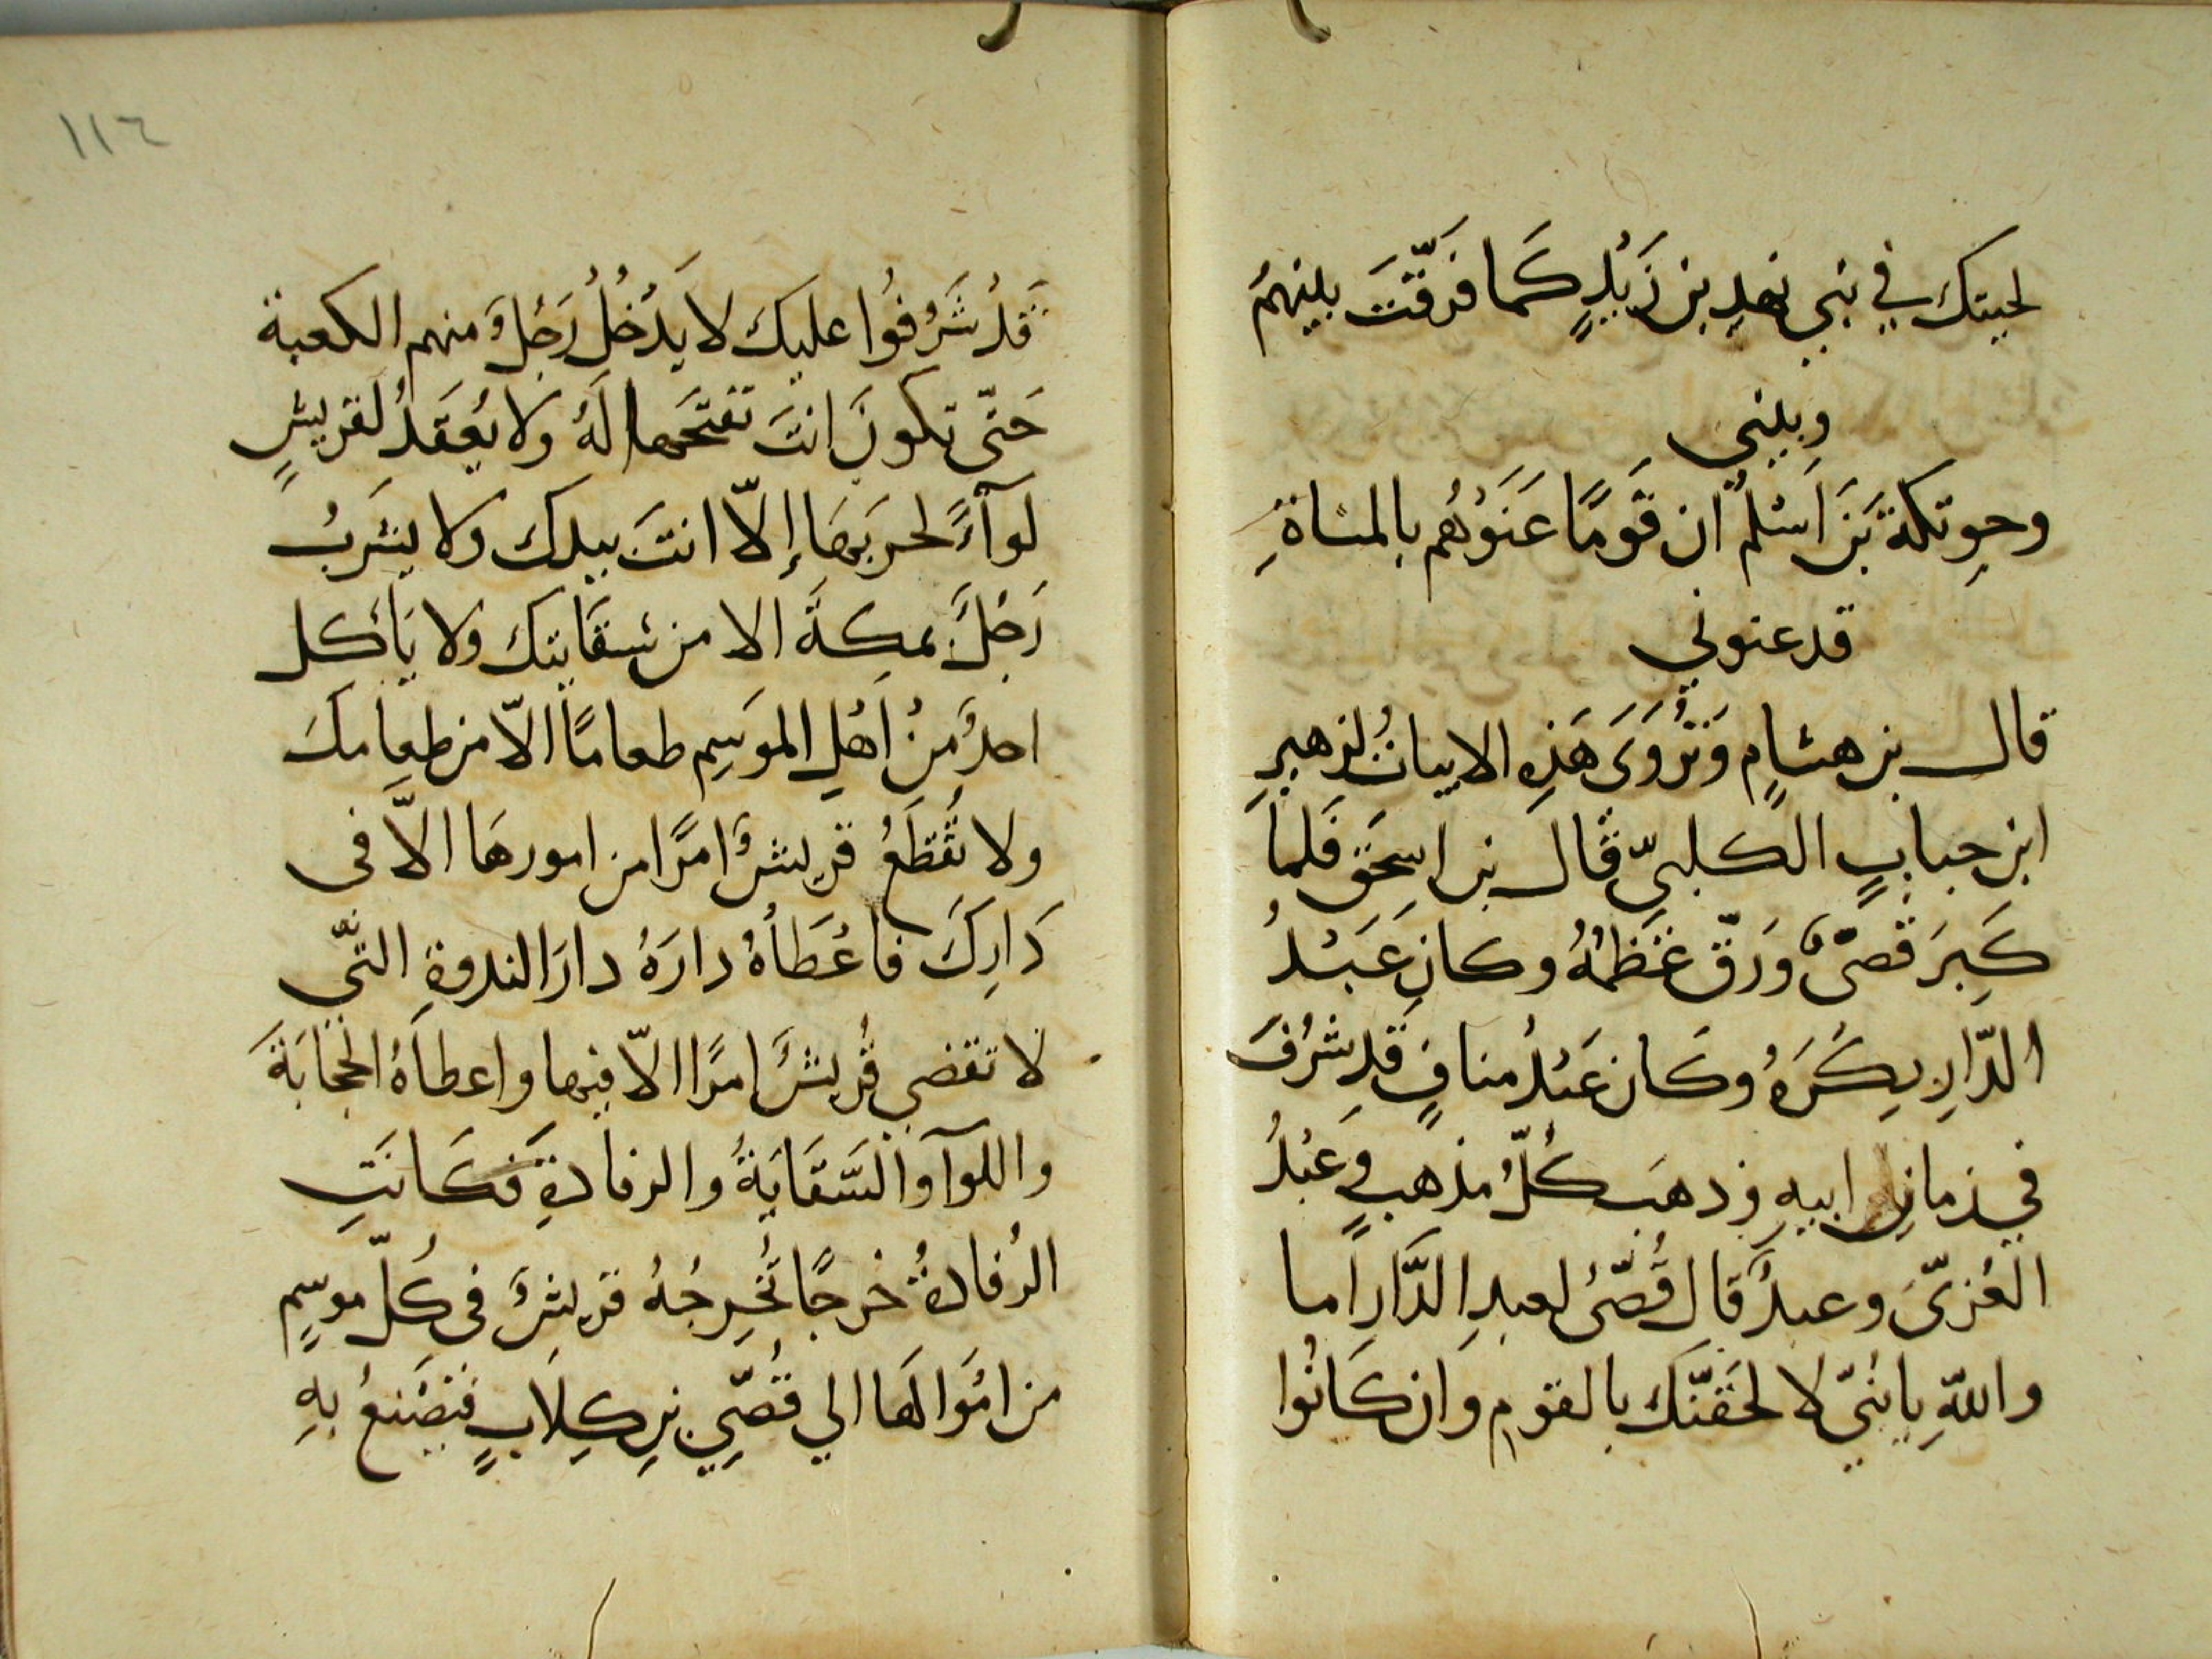 لحيتك في بني نهد بن زَيْدٍ كَما فَرقّتَ بينهمُ
وبيني
وحوِتكة بَنَ اَسْلم ان قَومًا عَنَوْهُم بالمساةِ
قد عنوني
قال بن هشامٍ وَتُرْوَى هَذِهِ الابياتُ لزهيرِ
ابن جنابٍ الكلبيّ قال بن اسحَق فَلما
كَبِرَ قُصىٌّ وَرَقّ عَظمُهُ وكان عَبْدُ
الدّارِ بِكْرَهُ وكان عَبْدُ منافٍ قد شرُفَ
في زمانِ ابيهِ وذهبَ كُلَّ مذهبٍ وَعَبْدُ
العُزىّ وعبدٌ قال قُصّىُ لعبدِ الدَّارِ اَما
واللهِ يا بُنىّ لالحقَنَّكَ بالقومِ وان كانُوا
١١٦
قَدْ شَرُفُوا عليك لا يَدْخُلُ رَجُلٌ منهم الكعبة
حَتّى تكونَ انتَ تفتَحَها لَهُ وَلا يُعقَدُ لقريشٍ
لوآءً لحربَها إلاّ انتَ بيدك ولا يشربُ
رَجُلٌ بمكةَ الا من سقايتك ولا يأكل
احدٌ مِنْ اَهْلِ الموسِم طعامًا الاّ من طعامكَ
ولا تَقْطَعُ قريشٌ امرًا من امورهَا الاّ فى
دَارِكَ فاعْطَاهُ دارَهُ دارَ الندوةِ التّي
لا تقضي قُريشٌ امرًا الاّ فيها واعطاهُ الحجابَةَ
واللوآ والسَّقَايَةُ والرفادةِ فكَانَتِ
الرُفادةُ خرجًا تُخرِجُهُ قريشٌ فى كُلّ موسِمٍ
من امْوالهَا الي قُصّيِ بنِ كِلاَبٍ فيَصْنعُ بهِ